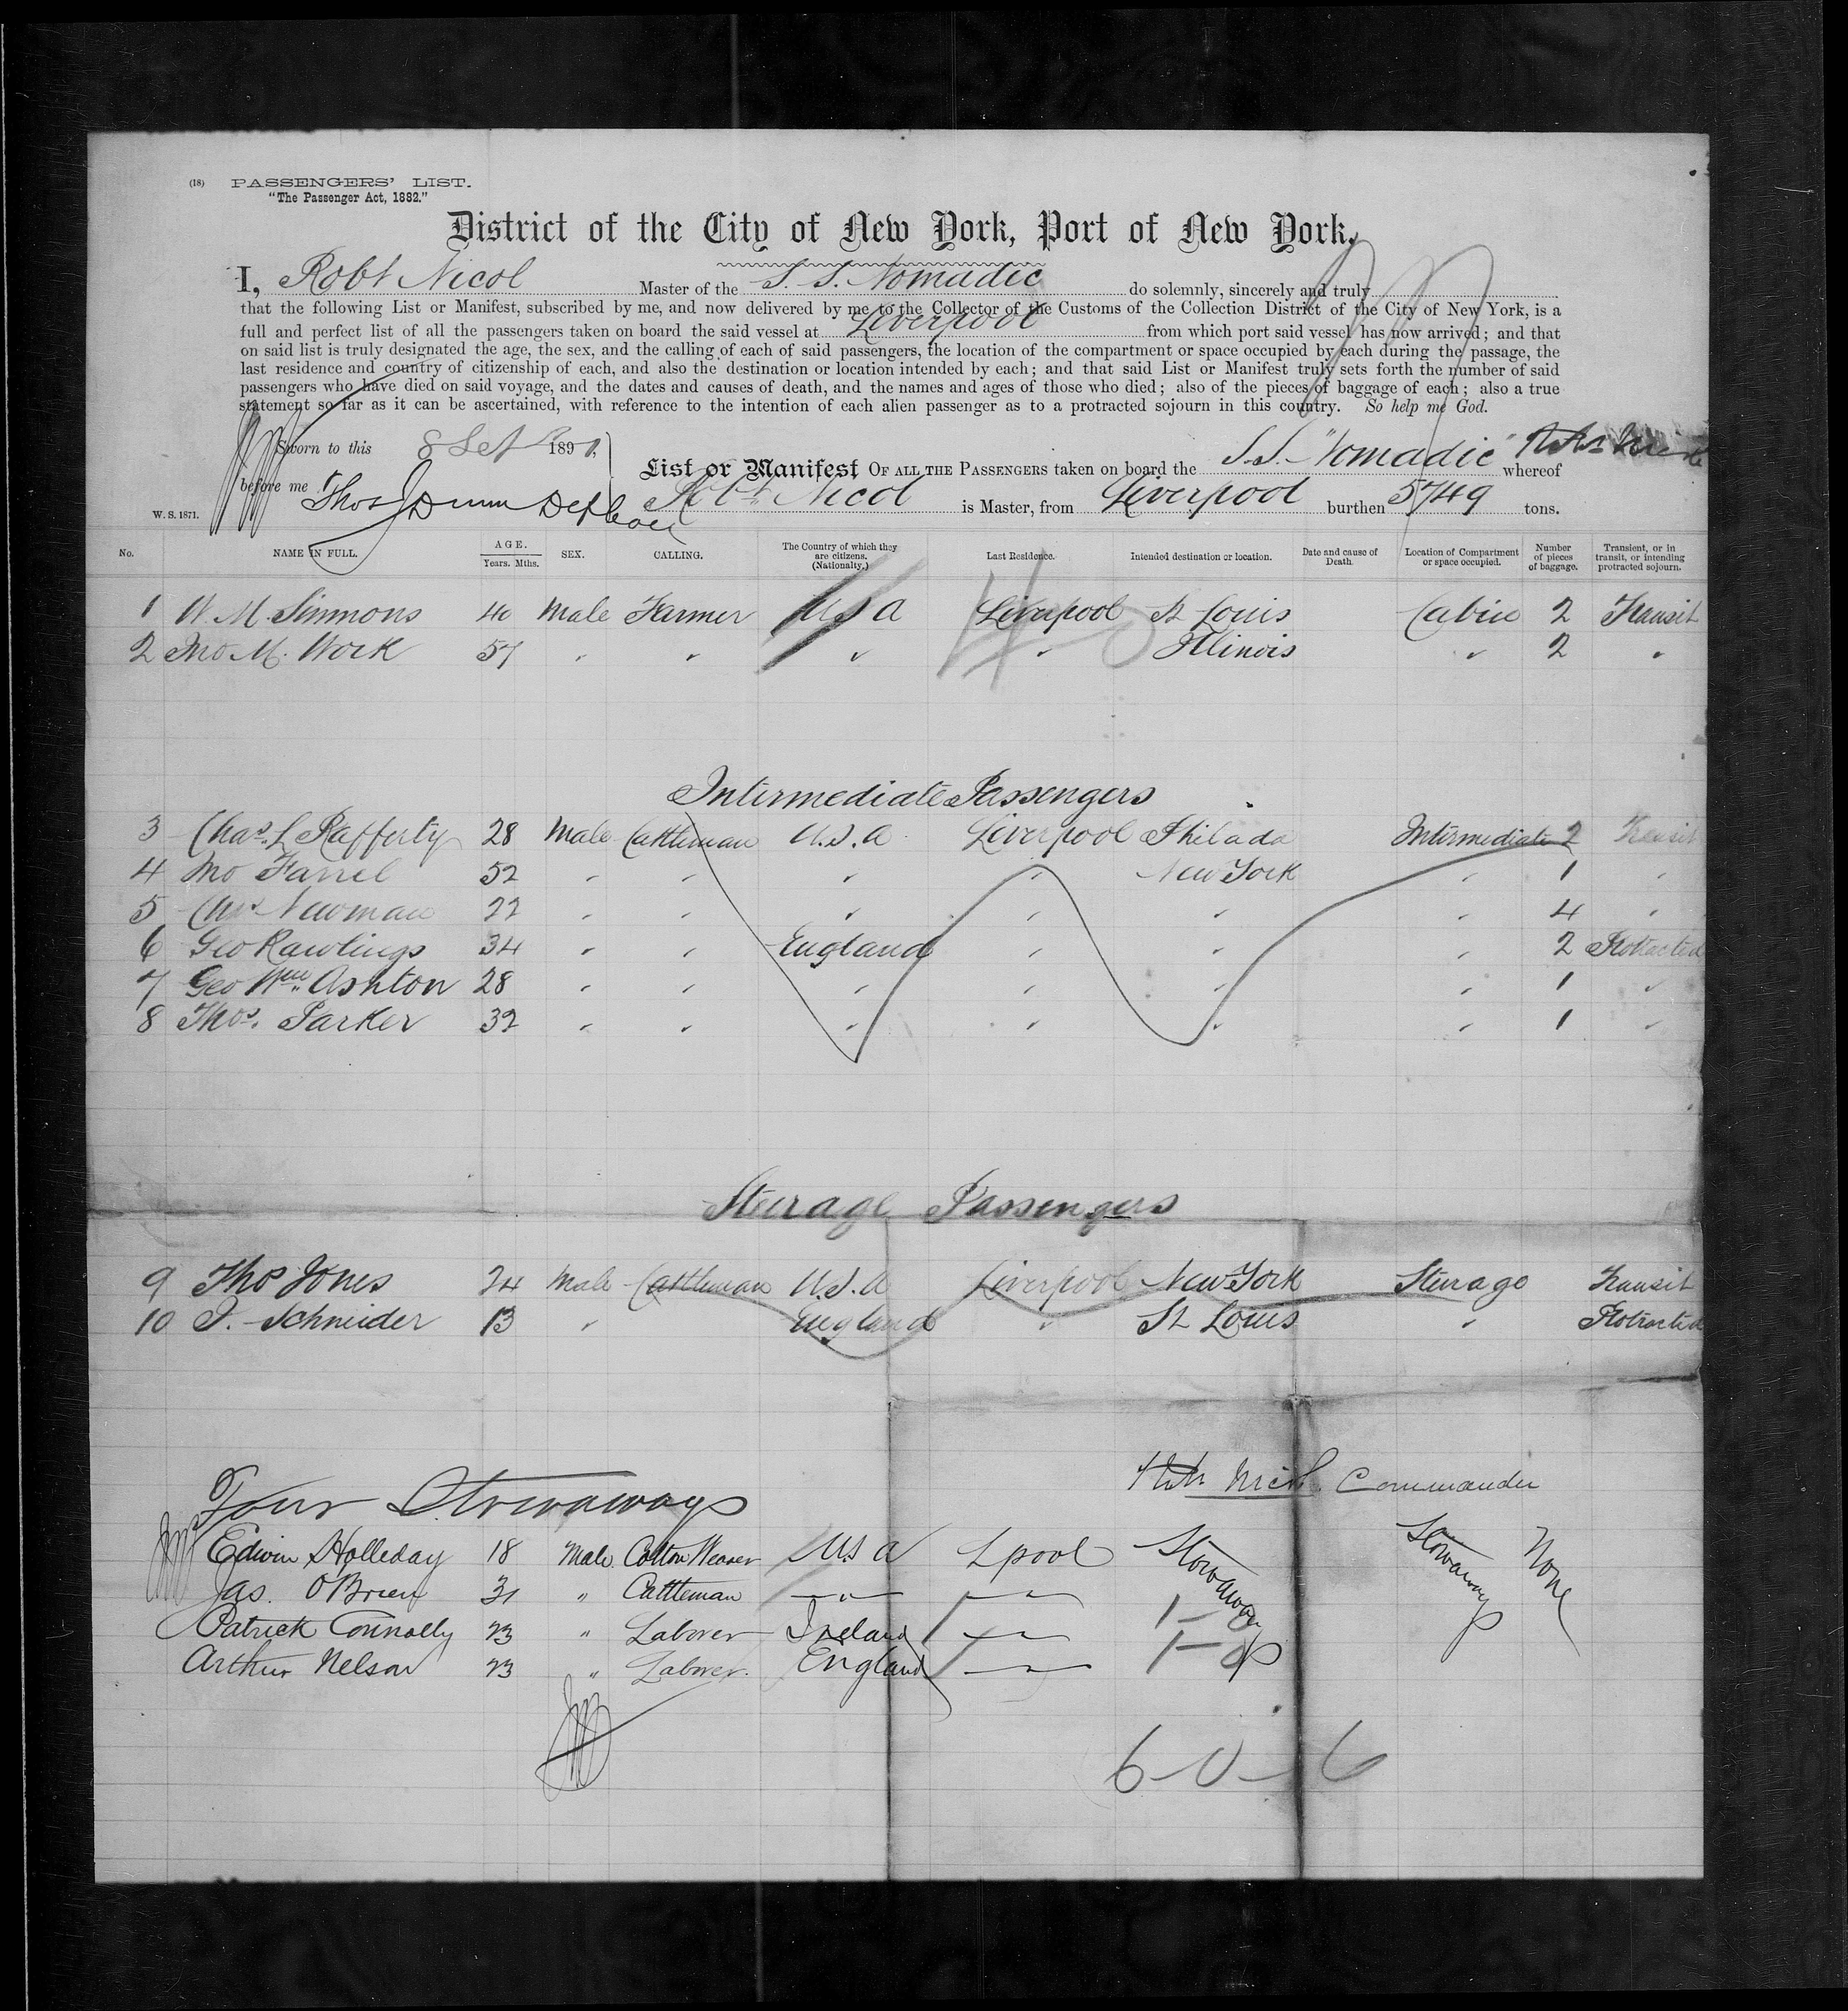 (18) PASSENGERS' LIST.
"The Passenger Act, 1882."
District of the City of New York, Port of New York.
I, Robt Nicol Master of the S. S. Nomadic do solemnly, sincerely and truly
that the following List or Manifest, subscribed by me, and now delivered by me to the Collector of the Customs of the Collection District of the City of New York, is a
full and perfect list of all the passengers taken on board the said vessel at Liverpool from which port said vessel has now arrived; and that
on said list is truly designated the age, the sex, and the calling of each of said passengers, the location of the compartment or space occupied by each during the passage, the
last residence and country of citizenship of each, and also the destination or location intended by each; and that said List or Manifest truly sets forth the number of said
passengers who have died on said voyage, and the dates and causes of death, and the names and ages of those who died; also of the pieces of baggage of each; also a true
statement so far as it can be ascertained, with reference to the intention of each alien passenger as to a protracted sojourn in this country. So help me God.
Sworn to this 8 Sep 1891,
before me Thos J Dunn Dep Coll
List or Manifest OF ALL THE PASSENGERS taken on board the S.S. "Nomadic" whereof
Robt Nicol is Master, from Liverpool burthen 5749 tons.
W. S. 1871.
No. NAME IN FULL. AGE. Years. Mths. SEX. CALLING. The Country of which they are citizens. (Nationality.) Last Residence. Intended destination or location. Date and cause of Death. Location of Compartment or space occupied. Number of pieces of baggage. Transient, or in transit, or intending protracted sojourn.
1 W. M. Simmons 40 Male Farmer U S A Liverpool St Louis Cabin 2 Transit
2 Jno M. Work 57 " " " " Illinois " 2 "
Intermediate Passengers
3 Chas. L Rafferty 28 Male Cattleman U.S.A Liverpool Philada Intermediate 2 Transit
4 Jno Farrel 52 " " " " New York " 1 "
5 Chas Newman 22 " " " " " " 4 "
6 Geo Rawlings 34 " " England " " " 2 Protracted
7 Geo Wm. Ashton 28 " " " " " " 1 "
8 Thos. Parker 32 " " " " " " 1 "
Steerage Passengers
9 Thos Jones 24 Male Cattleman U.S.A Liverpool New York Steerage Transit
10 J. Schneider 13 " England " St Louis " Protracted
Robt Nicol Commander
Four Stowaways
Edwin Holleday 18 Male Cotton Weaver U S A Lpool Stowaway Stowaways None
Jas. O'Brien 31 " Cattleman " "
Patrick Connolly 23 " Laborer Ireland " 1-
Arthur Nelson 23 " Laborer England " 1-
6-0-6